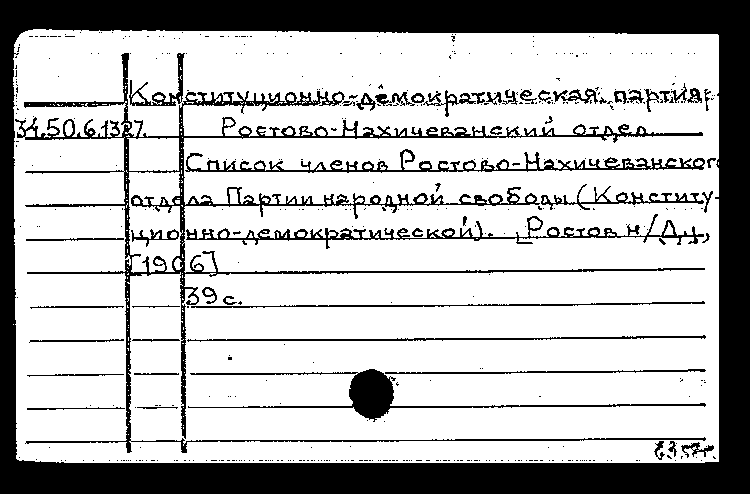 Конституционно-демократическая партия.
34.50.6.1327. Ростово-Нахичеванский отдел.
Список членов Ростово-Нахичеванского
отдела Партии народной свободы (Конститу-
ционно-демократической). [Ростов н/Д.],
[1906]
39 с.